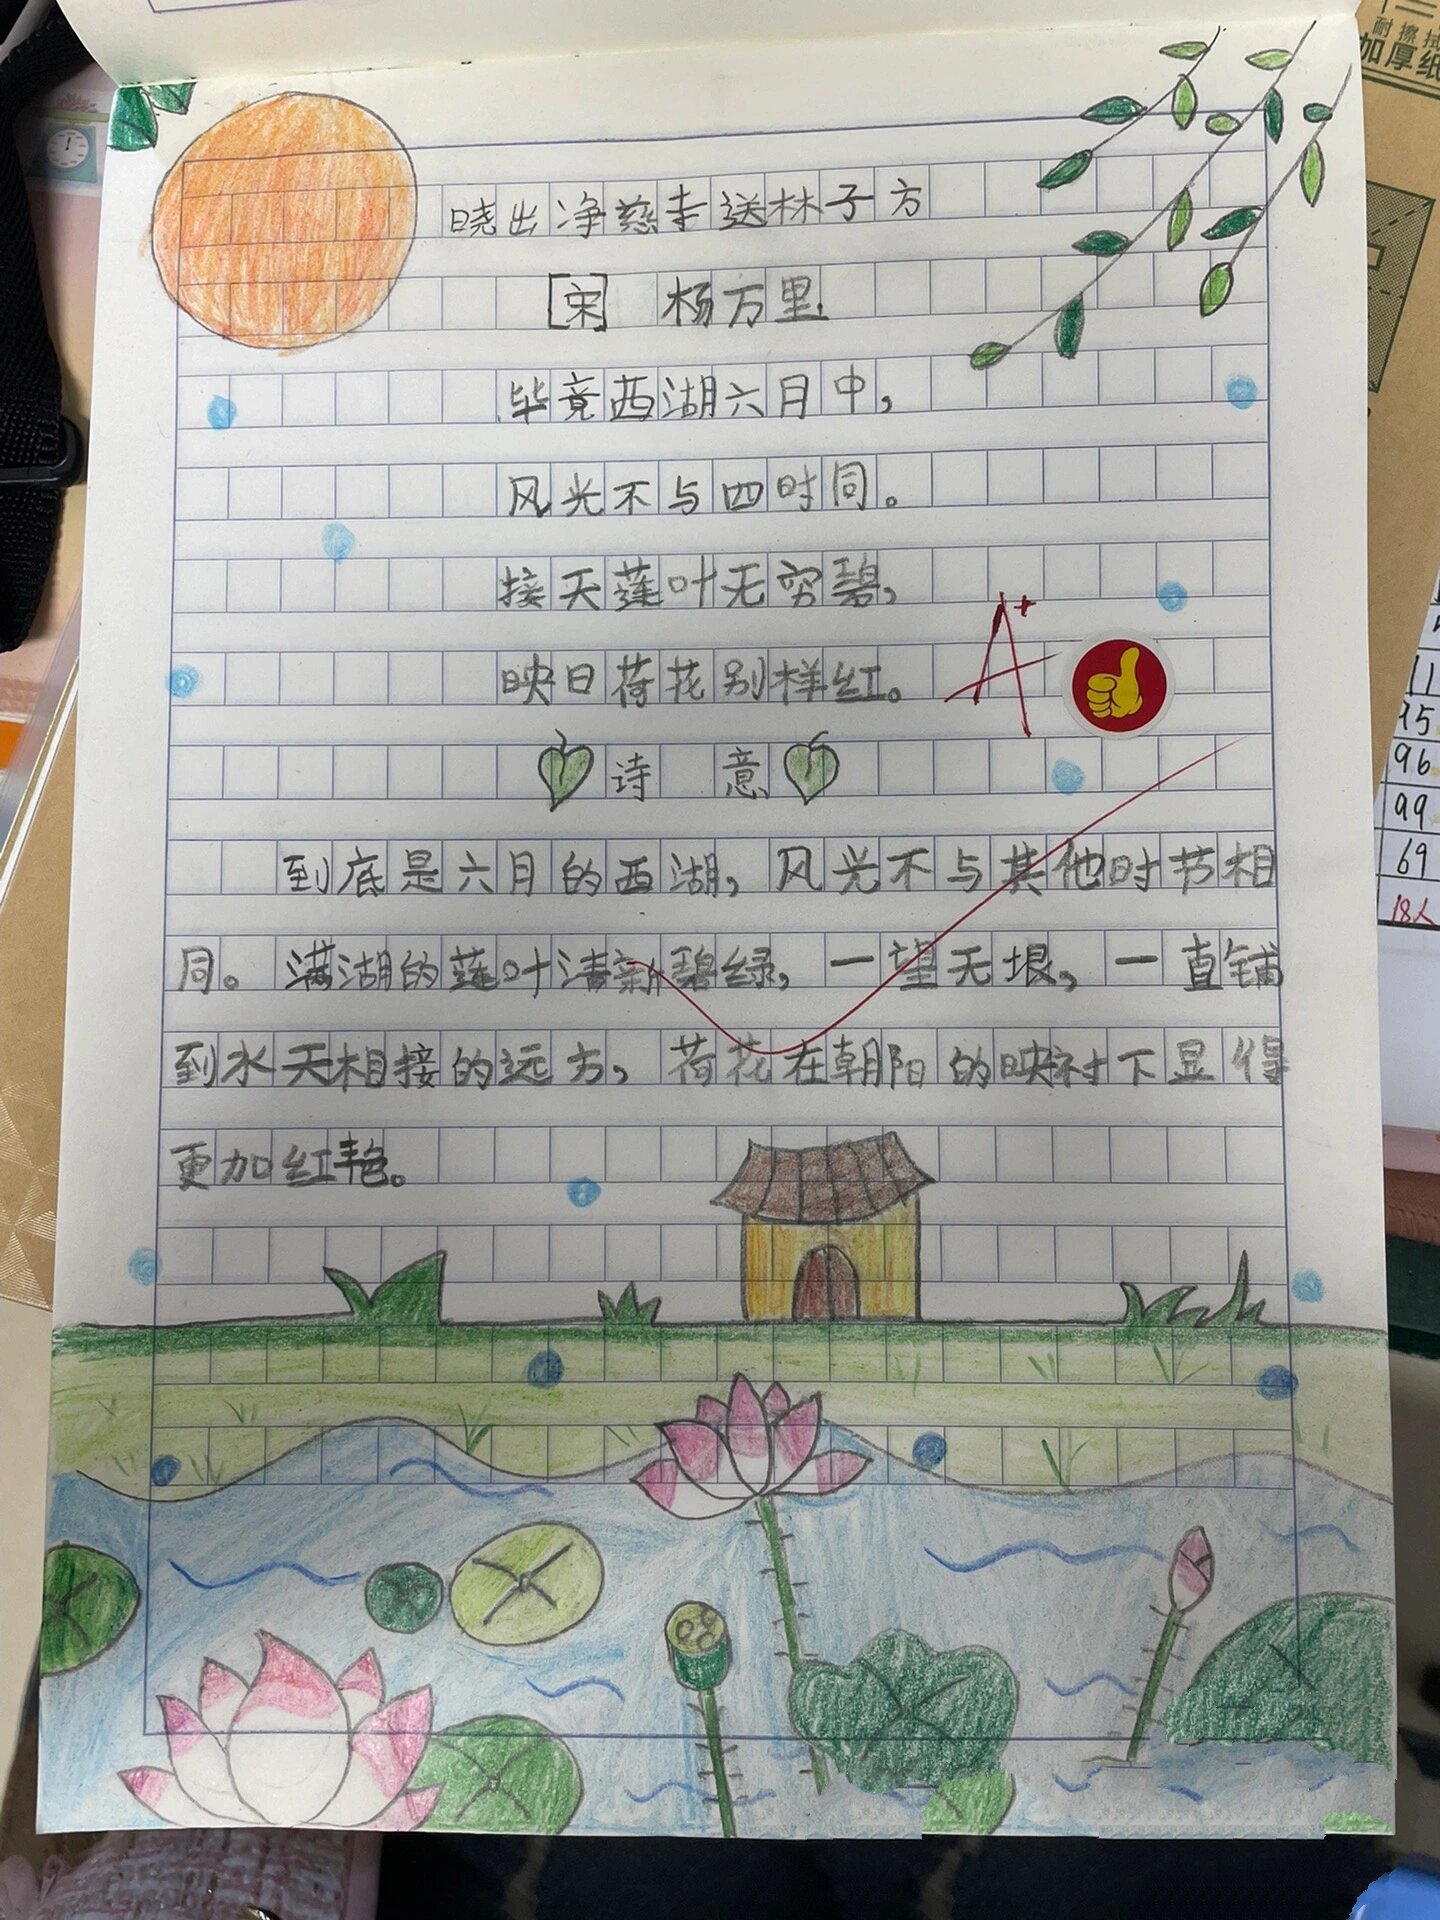 耐擦拭
加厚纸
晓出净慈寺送林子方
[宋] 杨万里
毕竟西湖六月中，
风光不与四时同。
接天莲叶无穷碧，
映日荷花别样红。
A+
诗 意
到底是六月的西湖，风光不与其他时节相
同。满湖的莲叶清新碧绿，一望无垠，一直铺
到水天相接的远方，荷花在朝阳的映衬下显得
更加红艳。
11
95
96
99
69
18人